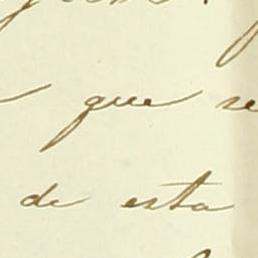 que se
de esta